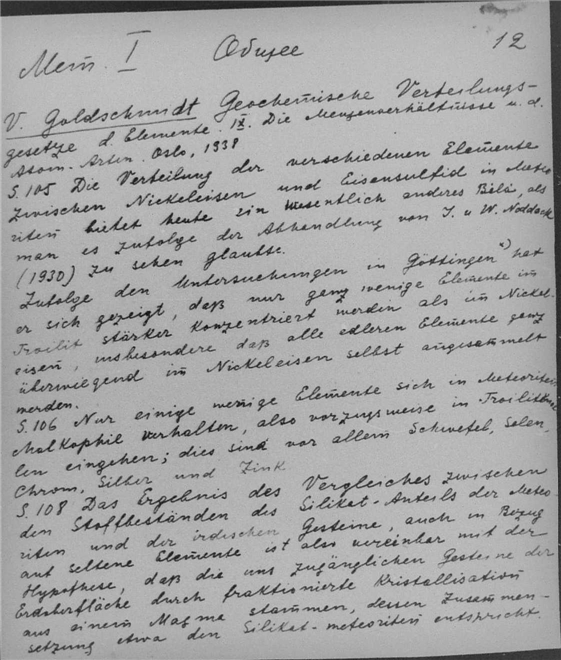 Мет. I Общее 12
V. Goldschmidt Geochemische Verteilungs-
gesetze d. Elemente. IX. Die Mengenverhältnisse u. d.
Atom-Arten. Oslo, 1938
S. 105 Die Verteilung der verschiedenen Elemente
zwischen Nickeleisen und Eisensulfid in Meteo
riten bietet heute ein wesentlich anderes Bild, als
man es zufolge der Abhandlung von I. u W. Noddack
(1930) zu sehen glaubte.
Zufolge den Untersuchungen in Göttingen hat
er sich gezeigt, daß nur ganz wenige Elemente im
Troilit stärker konzentriert werden als im Nickel-
eisen, insbesondere daß alle edleren Elemente ganz
überwiegend im Nickeleisen selbst angesammelt
werden.
S. 106 Nur einige wenige Elemente sich in Meteoriten
chalkophil verhalten, also vorzugsweise in
len eingehen; dies sind vor allem Schwefel, Selen,
Chrom, Silber und Zink
S. 108 Das Ergebnis des Vergleiches zwischen
den Stoffbeständen des Silikat-Anteils der Meteo-
riten und der irdischen Gesteine, auch in Bezug
auf seltene Elemente ist also vereinbar mit der
Hypothese, daß die uns zugänglichen Gesteine der
Erdoberfläche durch fraktionierte Kristallisation
aus einem Magma stammen, dessen Zusammen-
setzung etwa den Silikat-meteoriten entspricht.